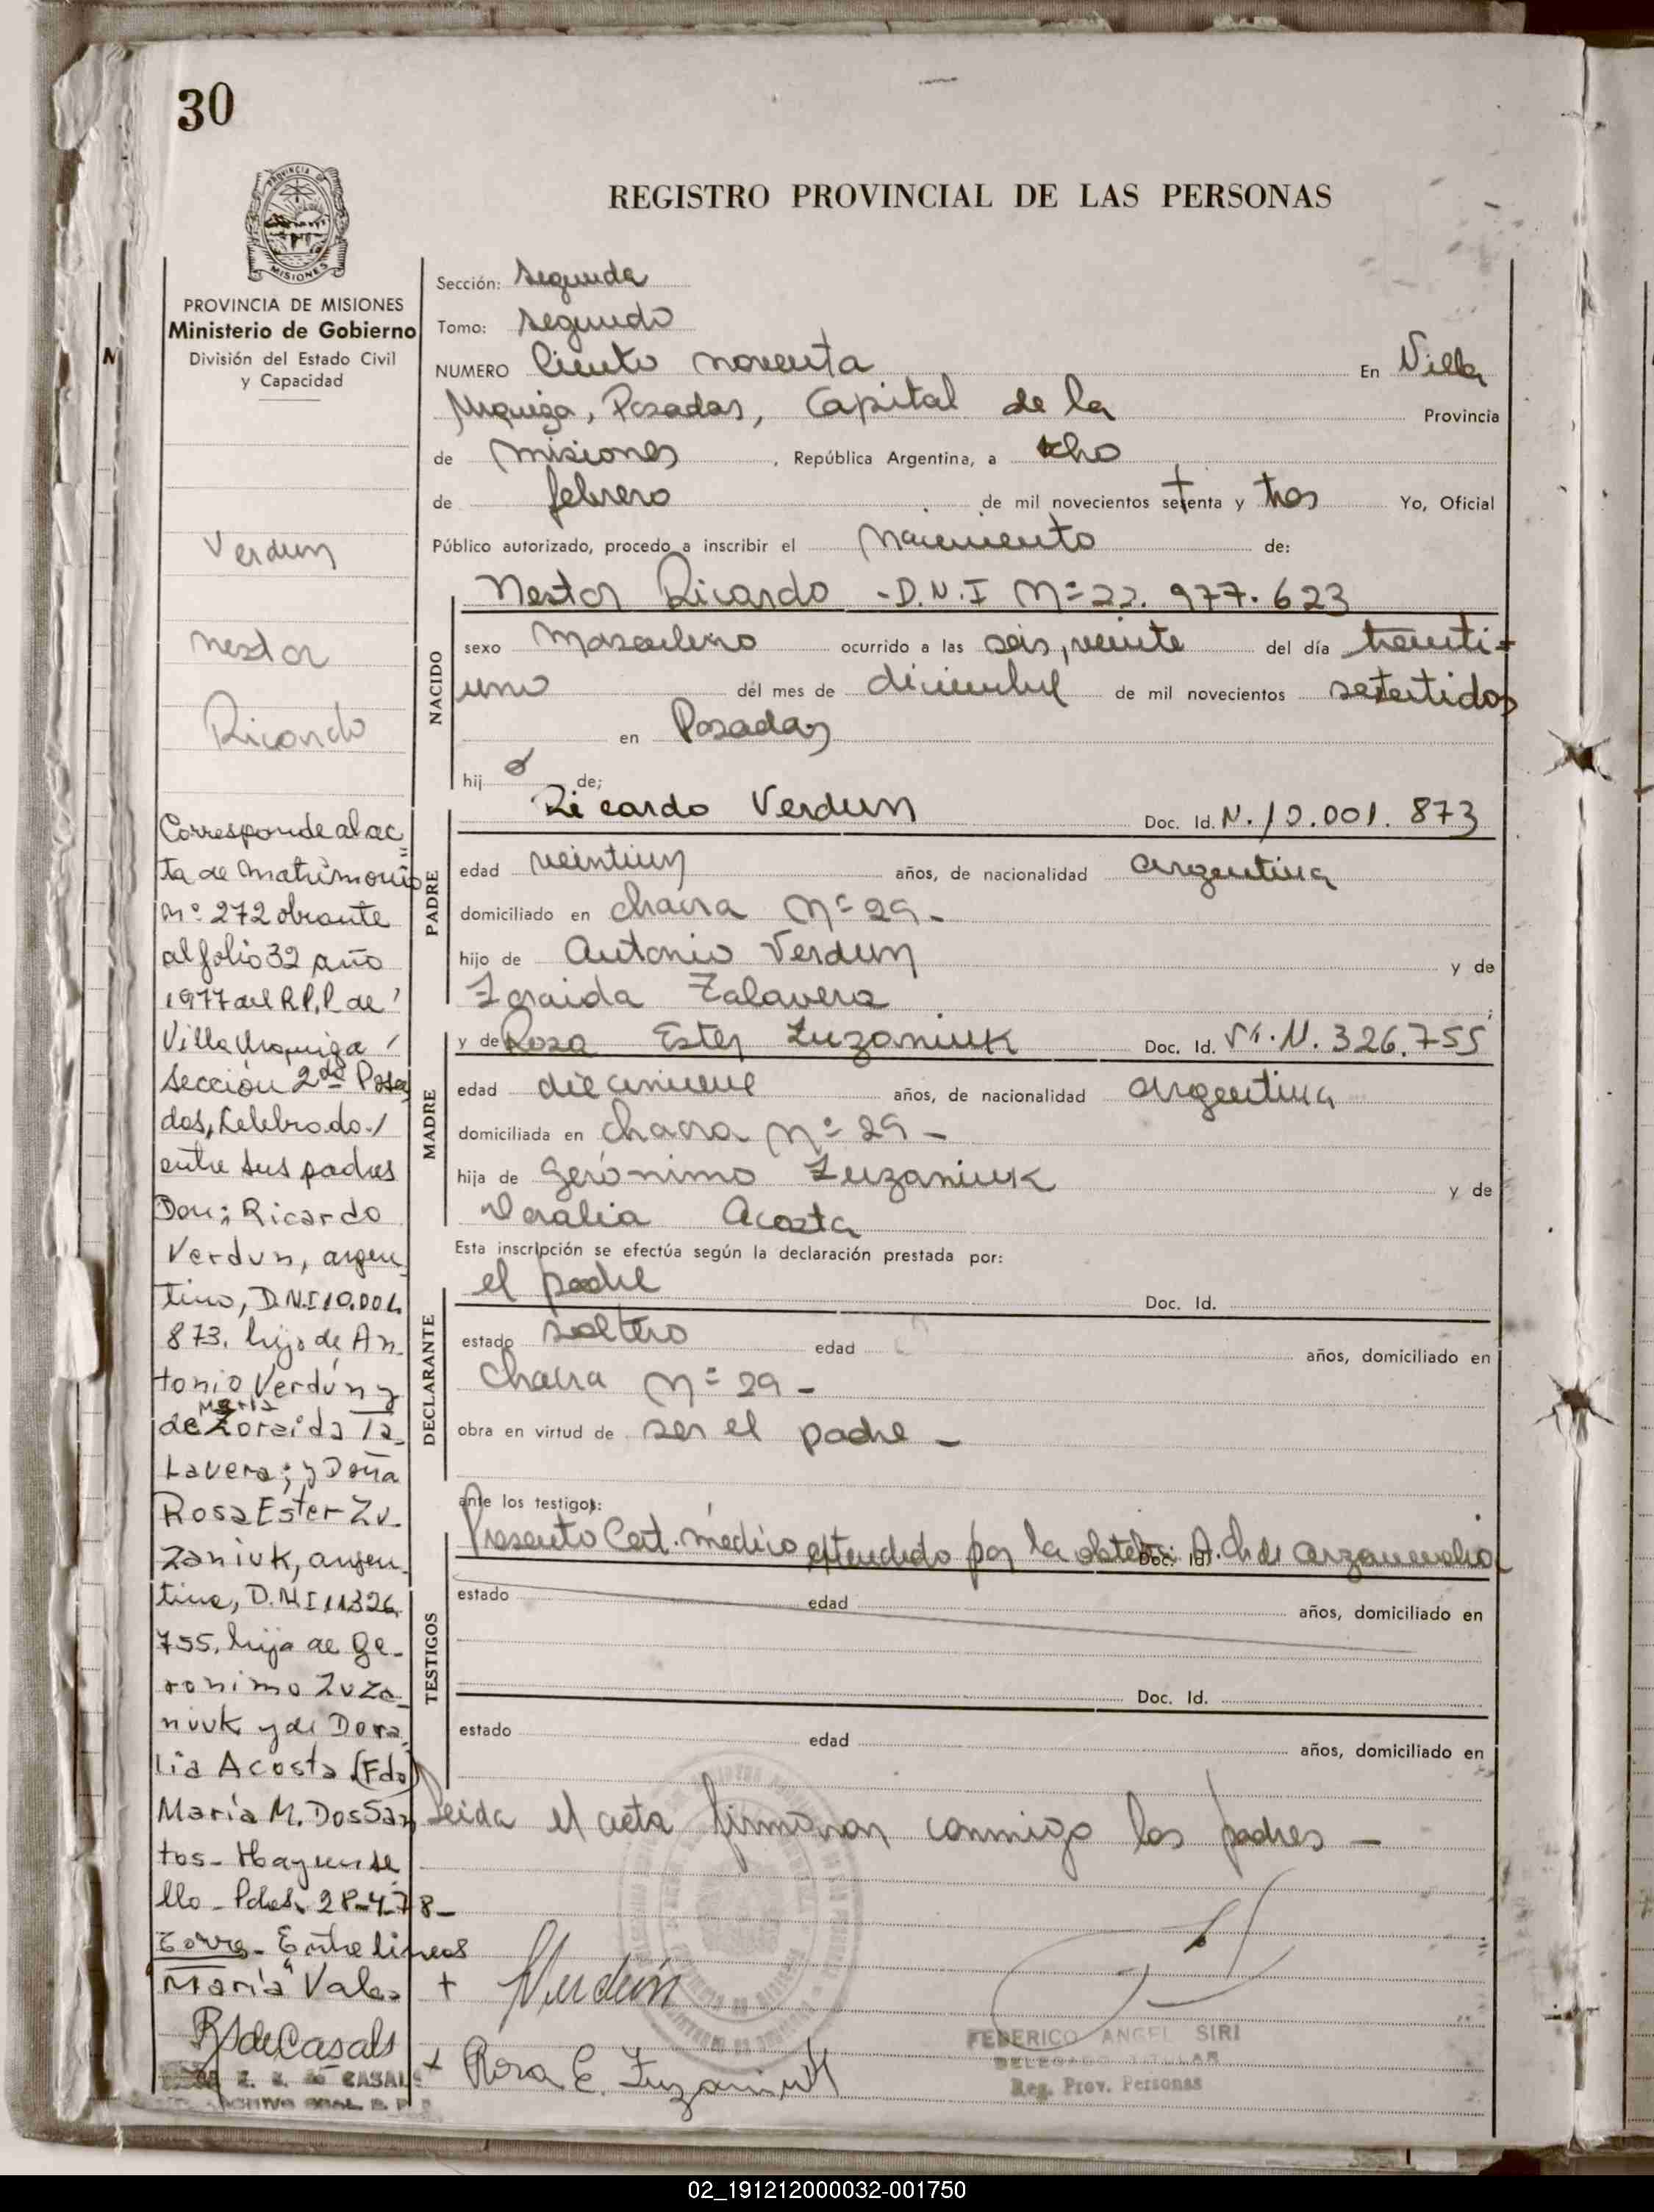 30
REGISTRO PROVINCIAL DE LAS PERSONAS
MISIONES
PROVINCIA DE MISIONES
Ministerio de Gobierno
División del Estado Civil
y Capacidad
Verdun
Nestor
Ricardo
Corresponde al ac
ta de Matrimonio
nº 272 obrante
al folio 32 año
1977 del R.P.P. de
Villa Urquiza
Sección 2da Posa
das, Celebrado
entre sus padres
Don: Ricardo
Verdun, argen
tino, D.N.I 10.001.
873. hijo de An
tonio Verdún y
María
de Zoraida Ta
lavera; y Doña
Rosa Ester Zu
zaniuk, argen
tina, D.N.I 11326
755. hija de Ge-
ronimo Zuza
niuk y de Dora
lia Acosta (Fdo)
María M. DosSan
tos- Hay un se
llo - Pdas. 28-4-78-
- Entre lineas
"María" Vale
de Casals
Sección: Segunda
Tomo: Segundo
NUMERO Ciento noventa En Villa
Urquiza, Posadas, Capital de la Provincia
de Misiones, República Argentina, a ocho
de febrero de mil novecientos setenta y tres Yo, Oficial
Público autorizado, procedo a inscribir el Nacimiento de:
NACIDO
Nestor Ricardo - D.N.I Nº 22.977.623
sexo Masculino ocurrido a las seis, veinte del día treinti-
uno del mes de diciembre de mil novecientos setentidos
en Posadas
hijo de;
PADRE
Ricardo Verdun Doc. Id. N. 10.001.873
edad veintiun años, de nacionalidad argentina
domiciliado en chacra Nº 29-
hijo de Antonio Verdun y de
Zoraida Talavera
MADRE
y de Rosa Ester Zuzaniuk Doc. Id. N. 326.755
edad diecinueve años, de nacionalidad argentina
domiciliada en chacra Nº 29-
hija de Gerónimo Zuzaniuk y de
Doralia Acosta
Esta inscripción se efectúa según la declaración prestada por:
DECLARANTE
el padre Doc. Id.
estado soltero edad años, domiciliado en
chacra Nº 29-
obra en virtud de ser el padre -
ante los testigos:
TESTIGOS
Presento Cert. médico extendido por la Doc. Id.
estado edad años, domiciliado en
Doc. Id.
estado edad años, domiciliado en
Leida el acta firmaron conmigo los padres -
+ Verdún
+ Rosa E. Zuzaniuk
FEDERICO ANGEL SIRI
DELEGADO TITULAR
Reg. Prov. Personas
02_191212000032-001750